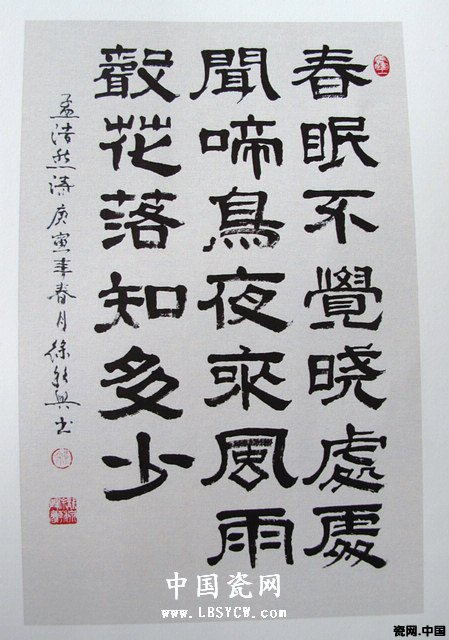 春眠不覺晓處處
聞啼鳥夜来風雨
聲花落知多少
孟浩然诗庚寅年春月徐興书
中国瓷网
www.LBSYCW.com
瓷网.中国